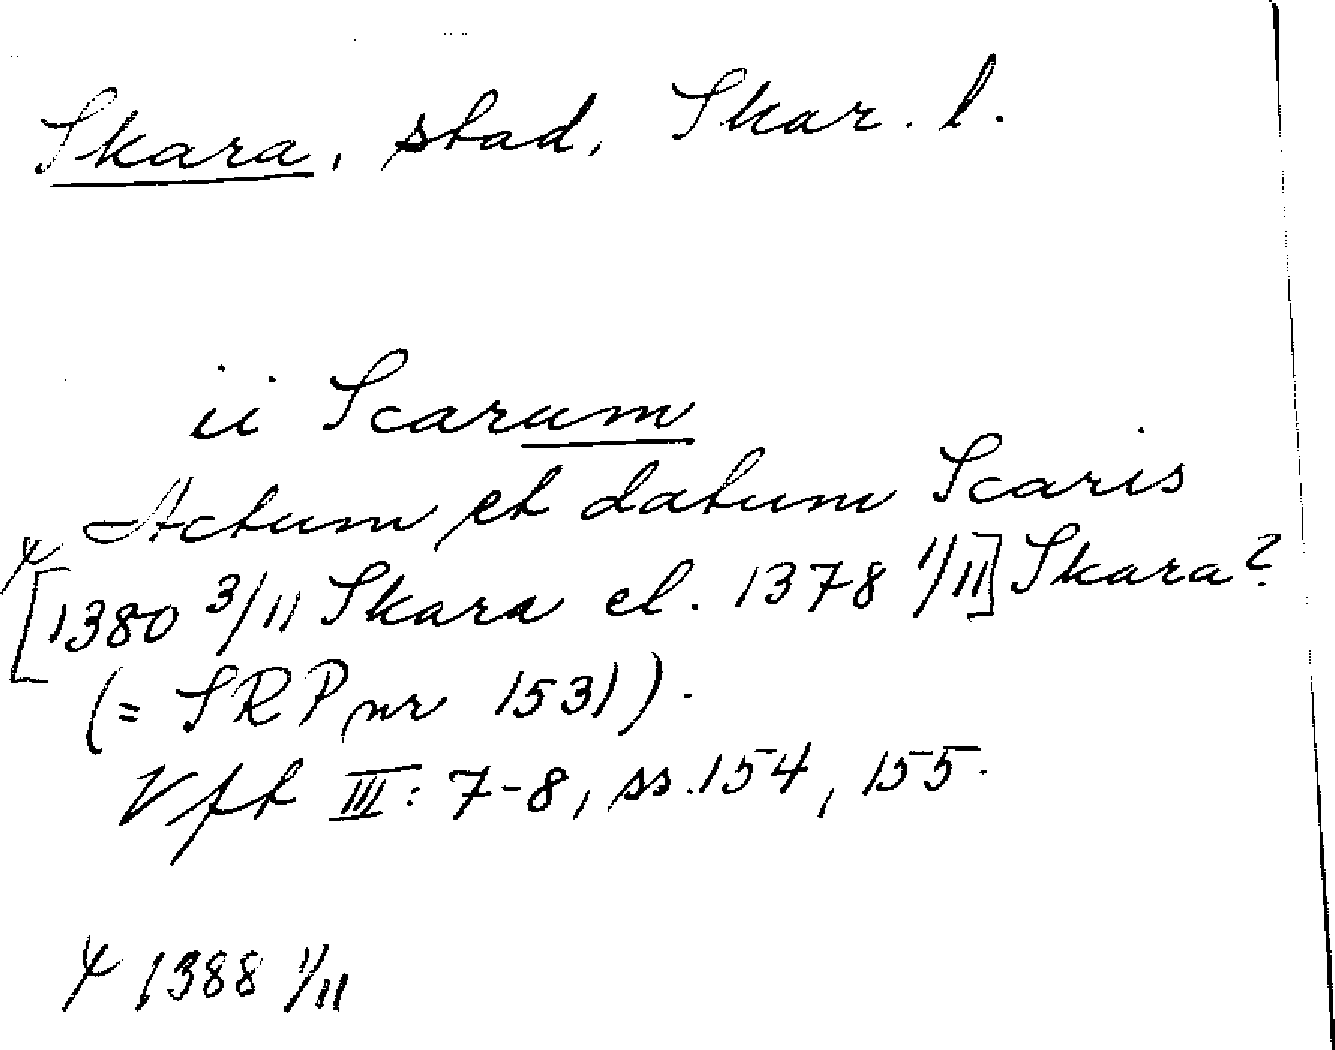 Skara, stad, Skar. l.
ii Scarum
Actum et datum Scaris
[1380 3/11 Skara el. 1378 1/11] Skara?
(= SRP nr 1531).
Vft III: 7-8, ss. 154, 155.
1388 1/11